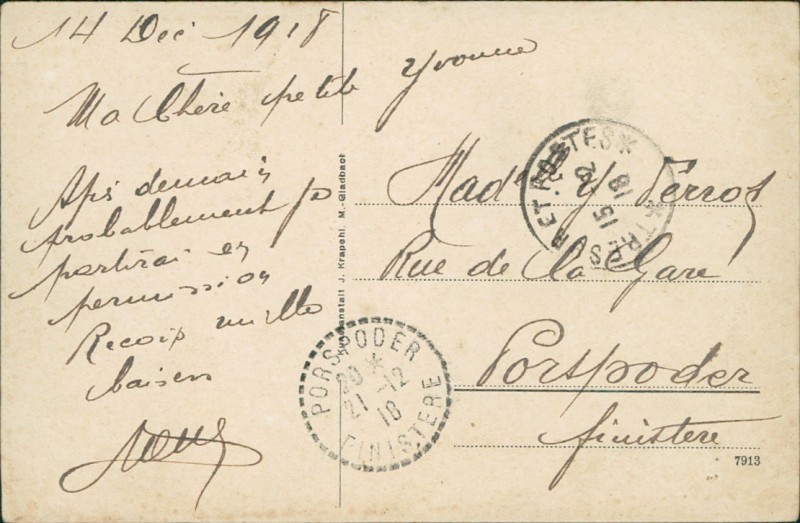 14 Dec 1918
Ma Chère petite Yvonne
Aprs demain
probablement je
partirai en
permission
Recois mille
baisers
Kunstanstalt J. Krapohl. M.-Gladbach
TRESOR ET POSTES
15 12 18
Mad Y Perrot
Rue de la Gare
Porspoder
finistere
PORSPODER
20
21-12
18
FINISTERE
7913